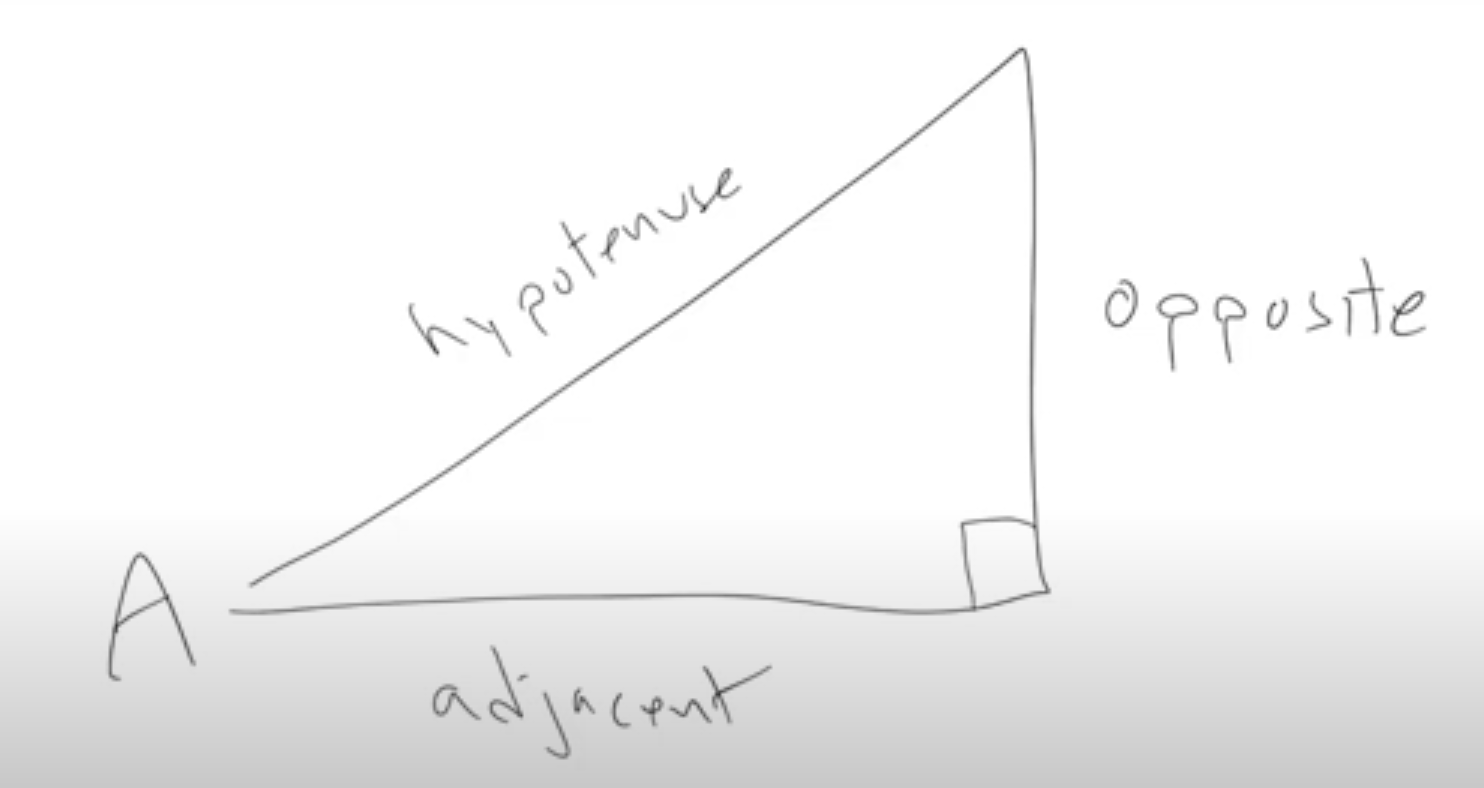 hypotenuse
opposite
A
adjacent